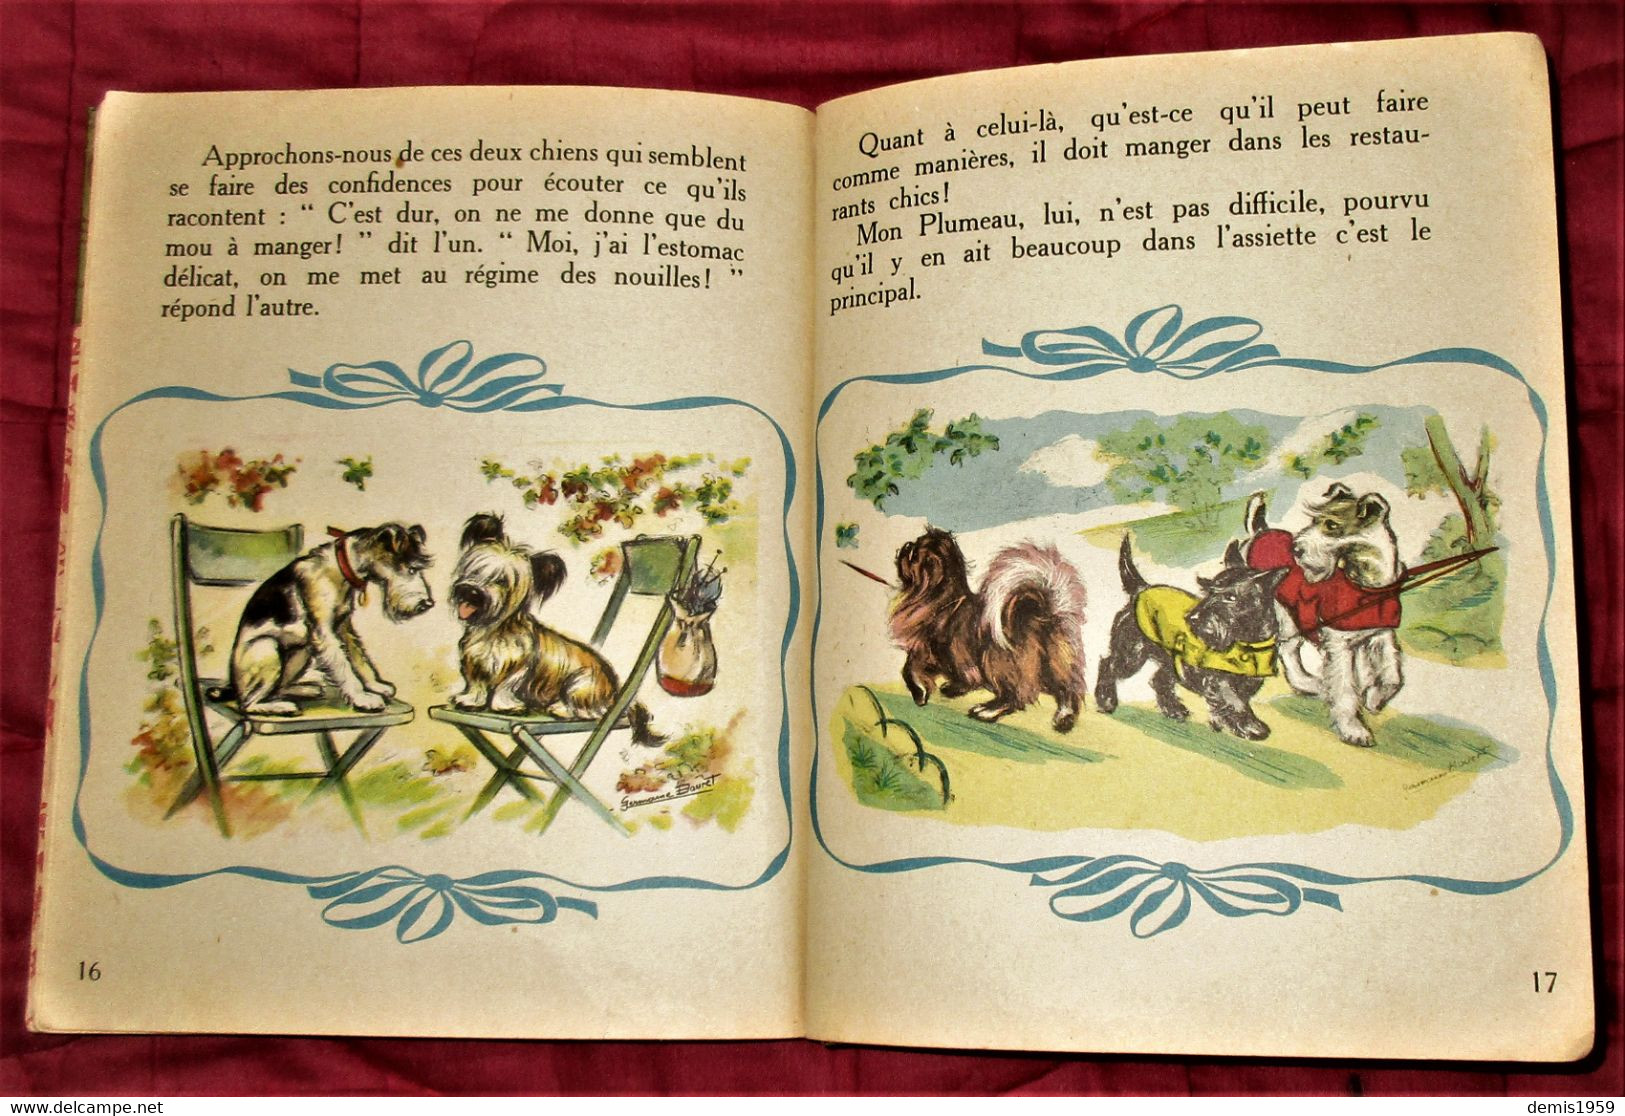 Approchons-nous de ces deux chiens qui semblent
se faire des confidences pour écouter ce qu'ils
racontent : “ C'est dur, on ne me donne que du
mou à manger! ” dit l'un. “ Moi, j'ai l'estomac
délicat, on me met au régime des nouilles! ”
répond l'autre.
Germaine Bouret
16
Quant à celui-là, qu'est-ce qu'il peut faire
comme manières, il doit manger dans les restau-
rants chics!
Mon Plumeau, lui, n'est pas difficile, pourvu
qu'il y en ait beaucoup dans l'assiette c'est le
principal.
Germaine Bouret
17
http://www.delcampe.net
demis1959